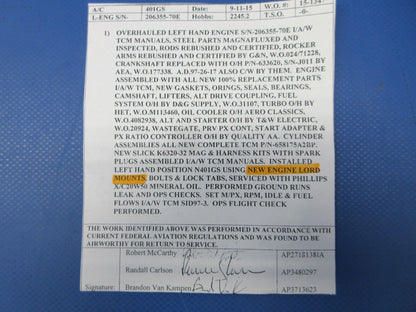 A/C 401GS Date 9-11-15 W.O.# 15-134
L-ENG S/N- 206355-70E Hobbs: 2245.2 T.S.O. -0-
1) OVERHAULED LEFT HAND ENGINE S/N-206355-70E I/A/W
TCM MANUALS, STEEL PARTS MAGNAFLUXED AND
INSPECTED, RODS REBUSHED AND CERTIFIED, ROCKER
ARMS REBUSHED AND CERTIFIED BY G&N, W.O.024/71228,
CRANKSHAFT REPLACED WITH O/H P/N-633620, S/N-J011 BY
AEA, W.O.177338. A.D.97-26-17 ALSO C/W BY THEM. ENGINE
ASSEMBLED WITH ALL NEW 100% REPLACEMENT PARTS
I/A/W TCM, NEW GASKETS, ORINGS, SEALS, BEARINGS,
CAMSHAFT, LIFTERS, ALT DRIVE COUPLING, FUEL
SYSTEM O/H BY D&G SUPPLY, W.O.31107, TURBO O/H BY
HET, W.O.M113460, OIL COOLER O/H AERO CLASSICS,
W.O.4082938, ALT AND STARTER O/H BY T&W ELECTRIC,
W.O.20924, WASTEGATE, PRV PX CONT, START ADAPTER &
PX RATIO CONTROLLER O/H BY QUALITY AA. CYLINDER
ASSEMBLIES ALL NEW COMPLETE TCM P/N-658175A2BP.
NEW SLICK K6320-32 MAG & HARNESS KITS WITH SPARK
PLUGS ASSEMBLED I/A/W TCM MANUALS. INSTALLED
LEFT HAND POSITION N401GS USING NEW ENGINE LORD
MOUNTS, BOLTS & LOCK TABS, SERVICED WITH PHILLIPS
X/C20W50 MINERAL OIL. PERFORMED GROUND RUNS
LEAK AND OPS CHECKS. SET M/PX, RPM, IDLE & FUEL
FLOWS I/A/W TCM SID97-3. OPS FLIGHT CHECK
PERFORMED.
THE WORK IDENTIFIED ABOVE WAS PERFORMED IN ACCORDANCE WITH
CURRENT FEDERAL AVIATION REGULATIONS AND WAS FOUND TO BE
AIRWORTHY FOR RETURN TO SERVICE.
Robert McCarthy AP2718138IA
Randall Carlson AP3480297
Signature: Brandon Van Kampen AP3713623